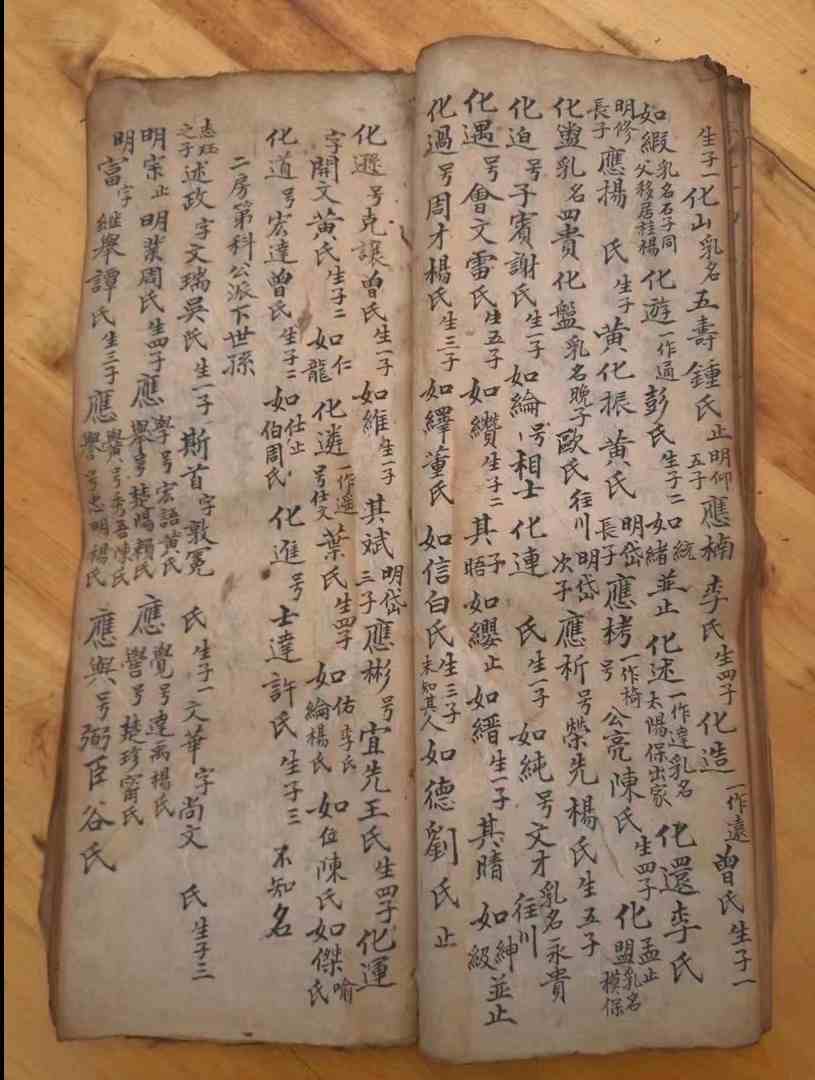 生子一化山乳名五壽鍾氏止明仰五子應楠李氏生四子化造一作遠曾氏生子一
如緞乳名石子同父移居桂楊化遊一作通彭氏生子二如統緒並止化述一作達乳名太陽保出家化還李氏
明修長子應揚 氏生子黃化振黃氏明岱長子應栲一作椅号公亮陳氏生四子化孟止盟乳名模保
化璗乳名四貴化盤乳名晚子歐氏徃川明岱次子應祈号榮先楊氏生五子
化迫号子賓謝氏生一子如綸号相士化連 氏生一子如純号文才乳名永貴徃川
化遇号會文雷氏生五子如纘生子二其子晤如纓止如縉生一子其晴如紳級並止
化過号周才楊氏生三子如繹董氏如信白氏生三子未知其人如德劉氏止
化遜号克讓曾氏生一子如維生一子其斌明岱三子應彬号宜先王氏生四子化運
字開文黃氏生子二如仁龍化遴一作遥号仕文葉氏生四子如佑李氏綸楊氏如位陳氏如傑喻氏
化道号宏達曾氏生子二如仕止伯周氏化進号士達許氏生子三不知名
二房第科公派下世孫
志珏之子述政字文瑞吳氏生一子斯首字敦冕 氏生子一文華字尚文 氏生子三
明宗止明葉周氏生四子應學号宏語黃氏舉号楚陽賴氏應覺号達禹楊氏譽号楚珍甯氏
明富字繼舉譚氏生三子應黌号秀吾陳氏譽号忠明楊氏應與号弼臣谷氏